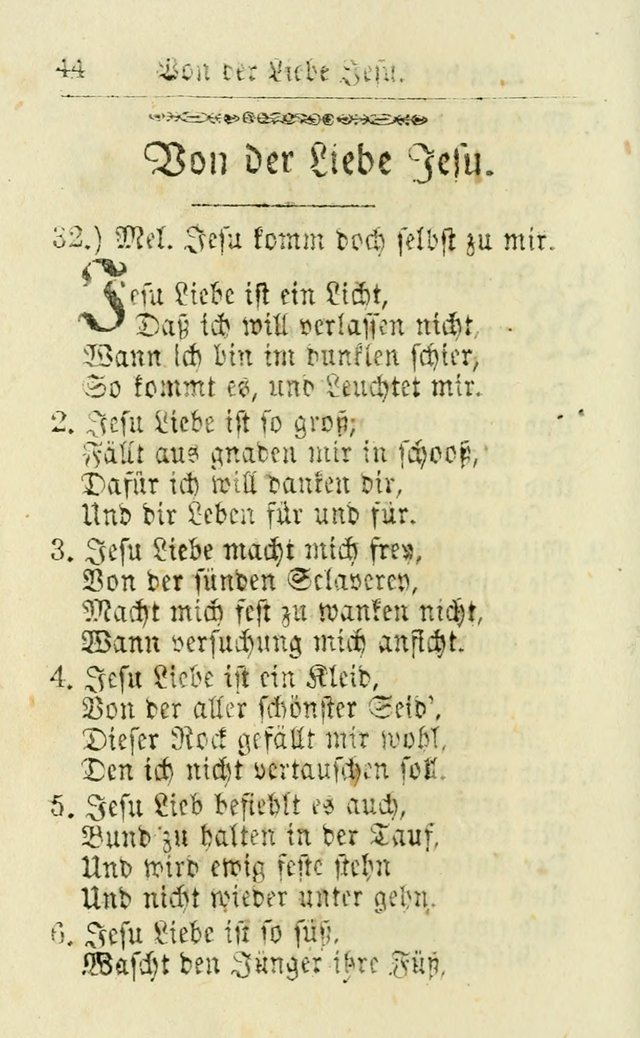 44 Von der Liebe Jesu.
Von der Liebe Jesu.
32.) Mel. Jesu komm doch selbst zu mir.
Jesu Liebe ist ein Licht,
Daß ich will verlassen nicht,
Wann ich bin im dunklen schier,
So kommt es, und Leuchtet mir.
2. Jesu Liebe ist so groß,
Fällt aus gnaden mir in schooß,
Dafür ich will danken dir,
Und dir Leben für und für.
3. Jesu Liebe macht mich frey,
Von der sünden Sclaverey,
Macht mich fest zu wanken nicht,
Wann versuchung mich anficht.
4. Jesu Liebe ist ein Kleid,
Von der aller schönster Seid',
Dieser Rock gefällt mir wohl,
Den ich nicht vertauschen soll.
5. Jesu Lieb befiehlt es auch,
Bund zu halten in der Tauf,
Und wird ewig feste stehn
Und nicht wieder unter gehn.
6. Jesu Liebe ist so süß,
Wascht den Jünger ihre Füß,